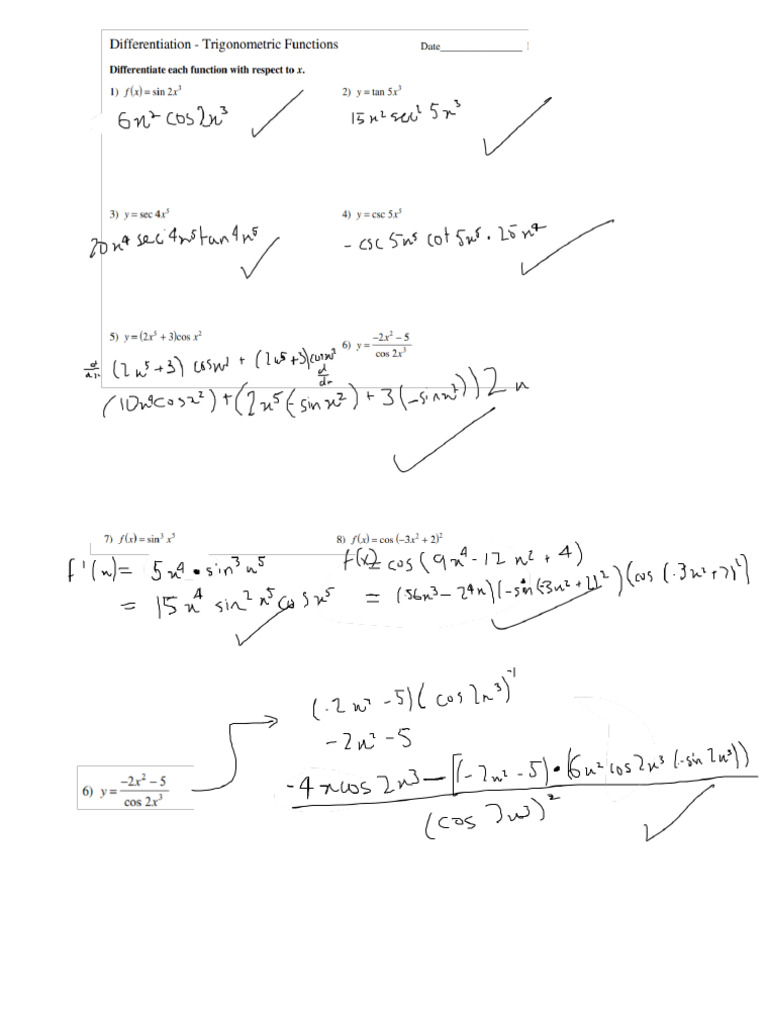 Differentiation - Trigonometric Functions
Date
Differentiate each function with respect to x.
1) f(x) = sin 2x³
2) y = tan 5x³
6x² cos2x³
15x² sec² 5x³
3) y = sec 4x⁵
4) y = csc 5x⁵
20x⁴ sec 4x⁵ tan 4x⁵
- csc 5x⁵ cot 5x⁵ · 25x⁴
5) y = (2x⁵ + 3)cos x²
6) y = (-2x² - 5) / (cos 2x³)
d/dx (2x⁵+3) cosx² + (2x⁵+3) cosx² d/dx
(10x⁴cosx²) + (2x⁵(-sinx²) + 3(-sinx²))2x
7) f(x) = sin³ x⁵
8) f(x) = cos (-3x² + 2)²
f'(x) = 5x⁴ • sin³x⁵
f(x) = cos(9x⁴ - 12x² + 4)
= 15x⁴ sin² x⁵ cosx⁵
= (56x³ - 24x)(-sin(-3x²+2)²)(cos(-3x²+2)²)
(-2x² - 5)(cos2x³)⁻¹
-2x² - 5
6) y = (-2x² - 5) / (cos 2x³)
-4xcos2x³ - [(-2x² - 5) • (6x² cos2x³(-sin2x³))
(cos 2x³)²